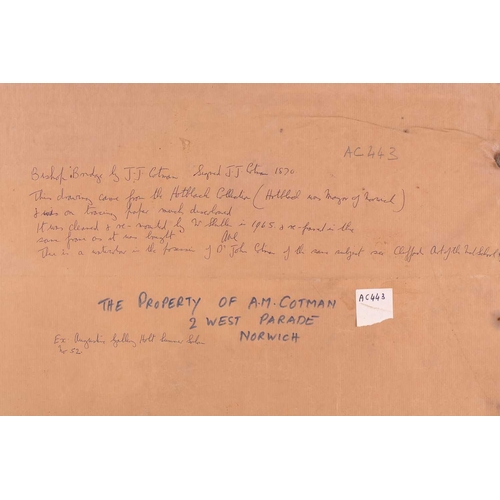 AC443
Bishop Bridge by J.J Cotman Signed J J Cotman 1870
This drawing came from the Hotblack Collection (Hotblack was Mayor of Norwich)
& was on tracing paper much discoloured
It was cleaned & re-mounted by in 1965 & re-framed in the
same frame as it was bought
This is a in the possession of Dr John Cotman of the same subject see Clifford Art of the
THE PROPERTY OF A.M. COTMAN
2 WEST PARADE
NORWICH
AC443
Ex Gallery Holt Summer